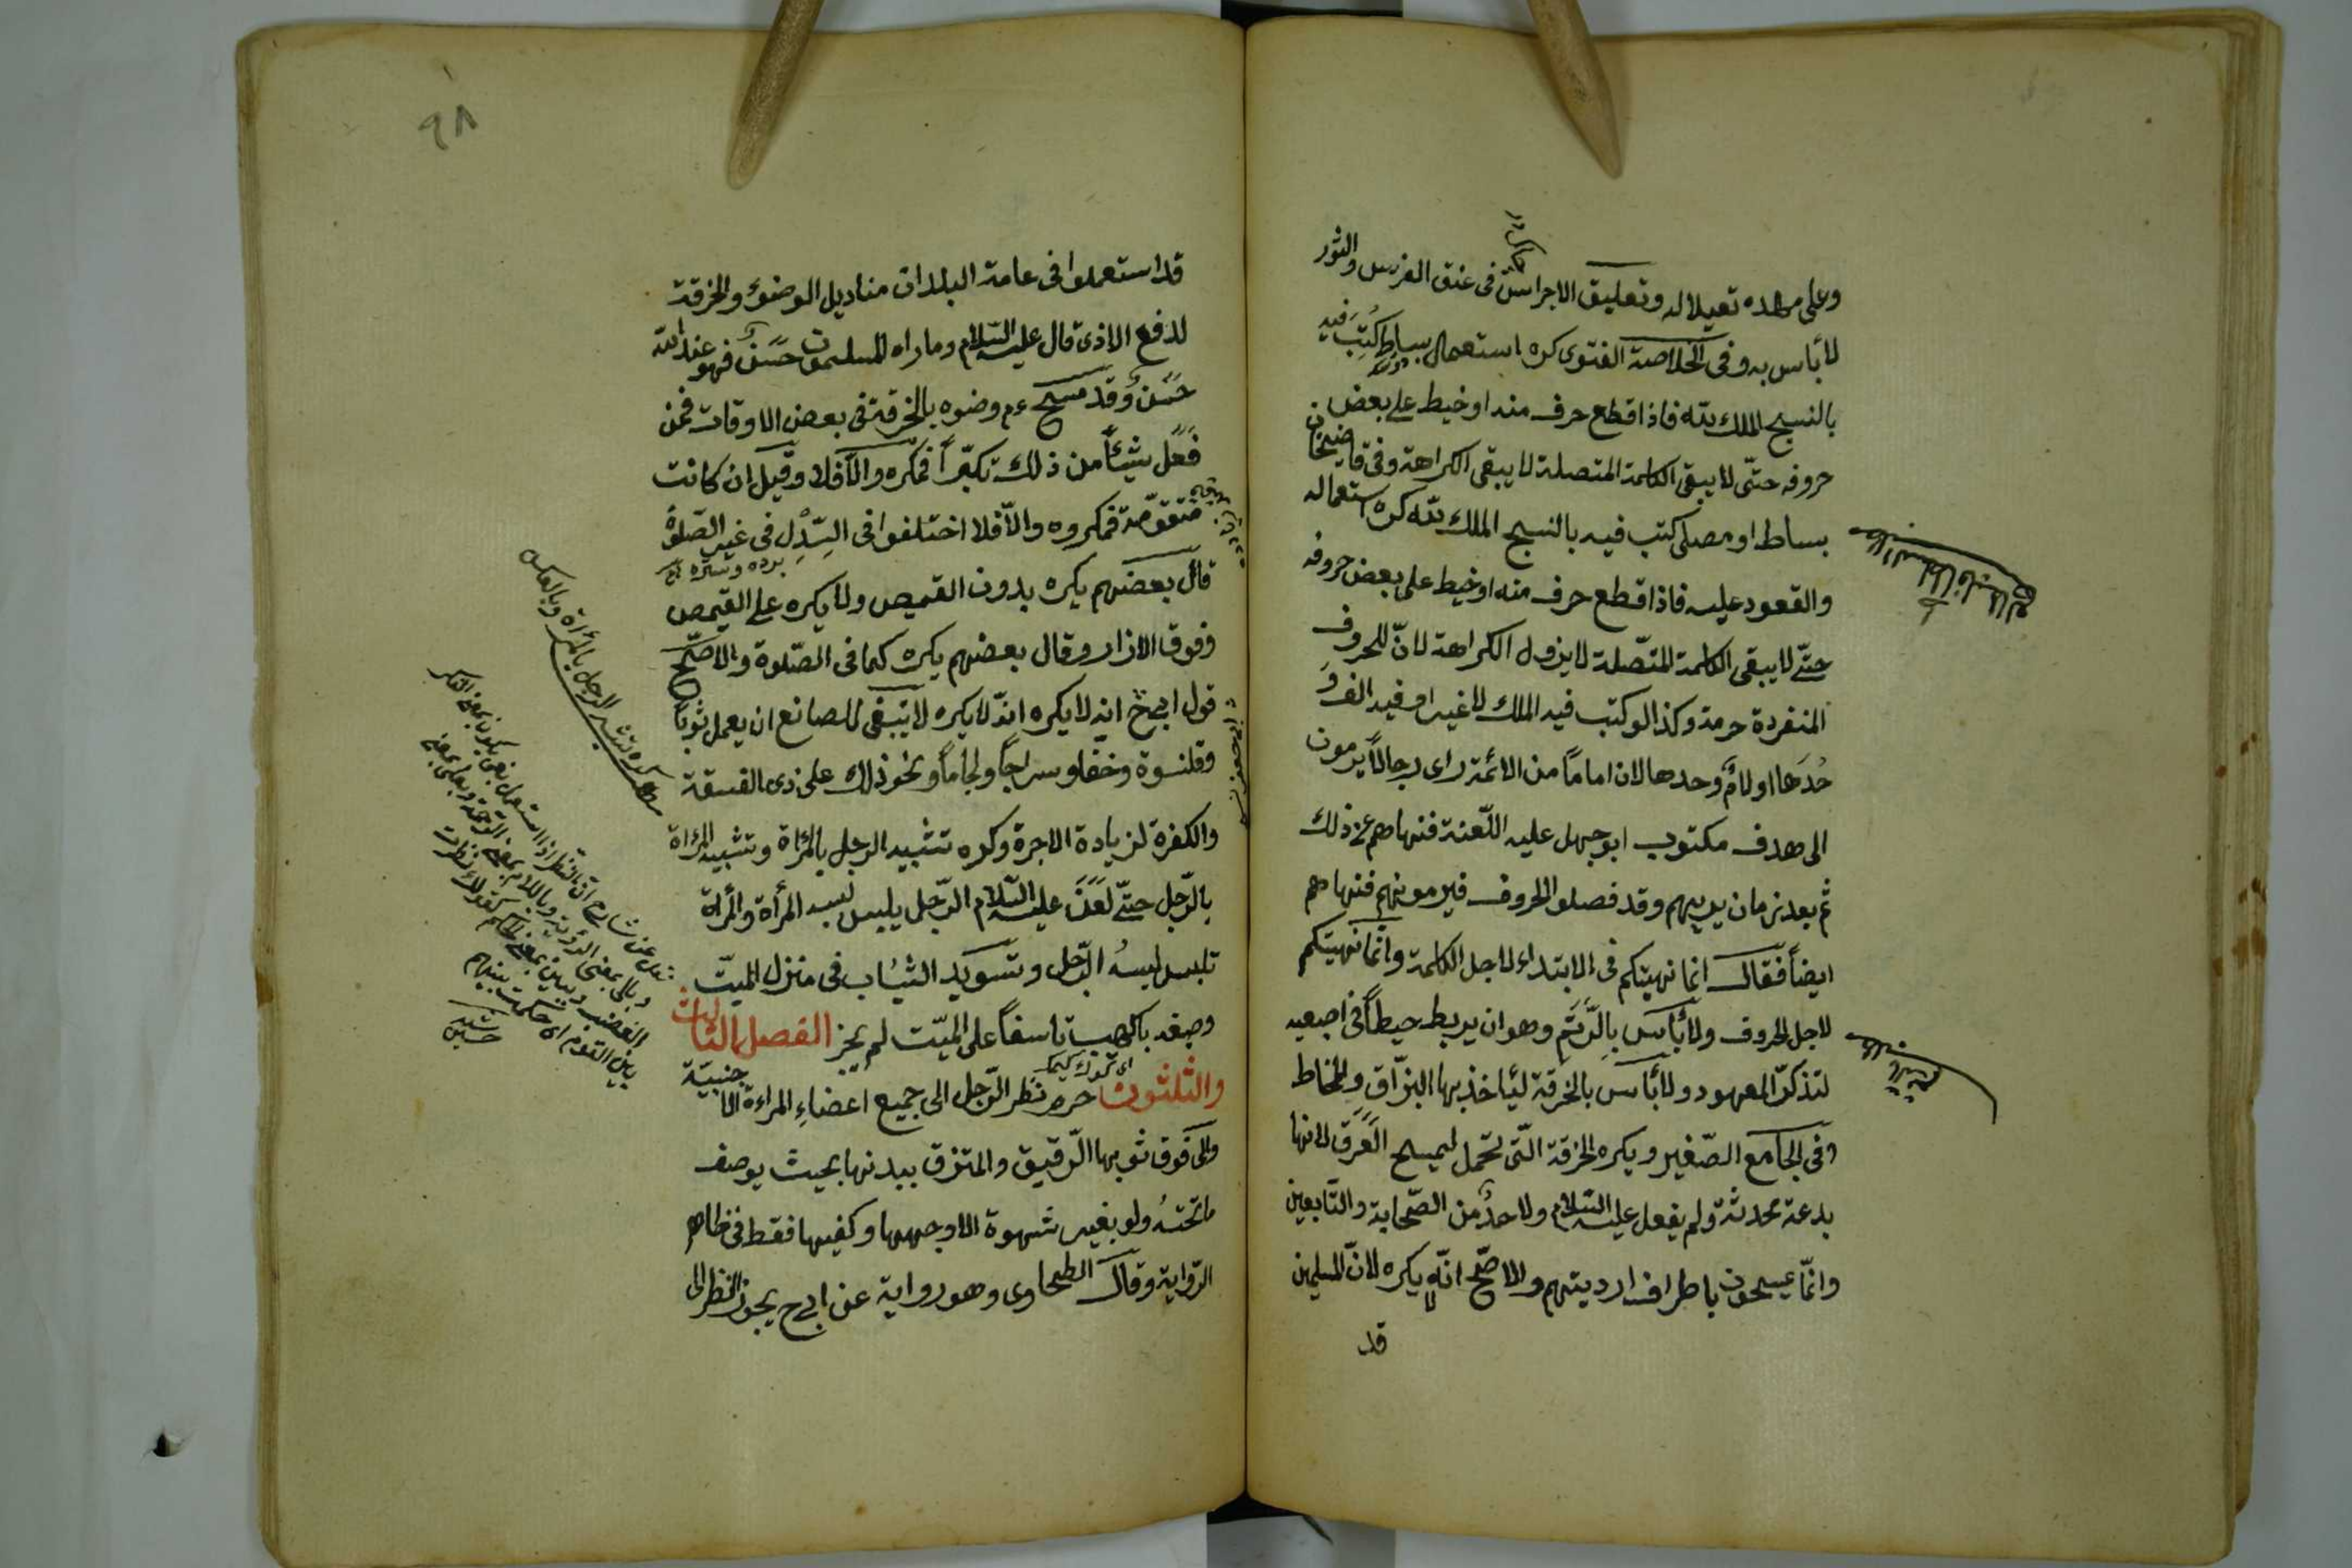 وعلى مهده تعيلا له وتعليق الاجراس فى عنق الفرس والثور
لا بأس به وفى الخلاصة الفتوى كره استعمال بساط كتب فيه
بالنسج الملك لله فاذا قطع حرف منه او خيط على بعض
حروفه حتى لا يبقى الكلمة المتصلة لا يبقى الكراهة وفى قاضيخان
بساط او مصلى كتب فيه بالنسج الملك لله كره استعماله
والقعود عليه فاذا قطع حرف منه او خيط على بعض حروفه
حتى لا يبقى الكلمة المتصلة لا يزول الكراهة لان للحروف
المنفردة حرمة وكذا لو كتب فيه الملك لا غير او فيه الف و
حدها او لام وحدها لان اماما من الائمة راى رجالا يرمون
الى هدف مكتوب ابو جهل عليه اللعنة فنهاهم عن ذلك
ثم بعد زمان يريهم وقد فصلو الحروف فيرمونهم فنهاهم
ايضا فقال انما نهيتكم فى الابتداء لاجل الكلمة وانما نهيتكم
لاجل الحروف ولا بأس بالرتم وهو ان يربط خيطا فى اصبعيه
لتذكر المعهود ولا بأس بالخرقة ليأخذ بها البزاق والمخاط
وفى الجامع الصغير ويكره الخرقة التى تحمل ليمسح العرق لانها
بدعة محدثة ولم يفعل عليه السلام ولا احد من الصحابة والتابعين
وانما يمسحون باطراف ارديتهم والاصح انه لا يكره لان المسلمين
قد
٩٨
قد استعملوا فى عامة البلدان مناديل الوضوء والخرقة
لدفع الاذى قال عليه السلام وما راه المسلمون حسن فهو عند الله
حسن وقد مسح عم وضوه بالخرقة فى بعض الاوقات فمن
فعل شيئا من ذلك تكبرا فمكره والا فلا وقيل ان كانت
متقومة فمكروه والا فلا اختلفوا فى السدل فى غير الصلوة
قال بعضهم يكره بدون القميص ولا يكره على القميص
وفوق الازار وقال بعضهم يكره كما فى الصلوة والاصح
قول ابى ح انه لا يكره انه لا يكره لا ينبغى للصانع ان يعمل ثوبا
وقلنسوة وخفا وسراجا ولجاما ونحو ذلك على ذى الفسقة
والكفرة لزيادة الاجرة وكره تشبيه الرجل بالمرأة وتشبيه المرأة
بالرجل حتى لعن عليه السلام الرجل يلبس لبسه المرأة والمرأة
تلبس لبسه الرجل وتسويد الثياب فى منزل الميت
وصبغه باكهب تاسفا على الميت لم يجز الفصل الثالث
والثلثون حرم نظر الرجل الى جميع اعضاء المراءة الاجنبية
والى فوق ثوبها الرقيق والمتزق ببدنها بحيث يوصف
ما تحته ولو بغير شهوة الا وجهها وكفيها فقط فى ظاهر
الرواية وقال الطحاوى وهو رواية عن ابى ح يجوز النظر الى
مط كره تشبه الرجل بالمرأة وبالعكس